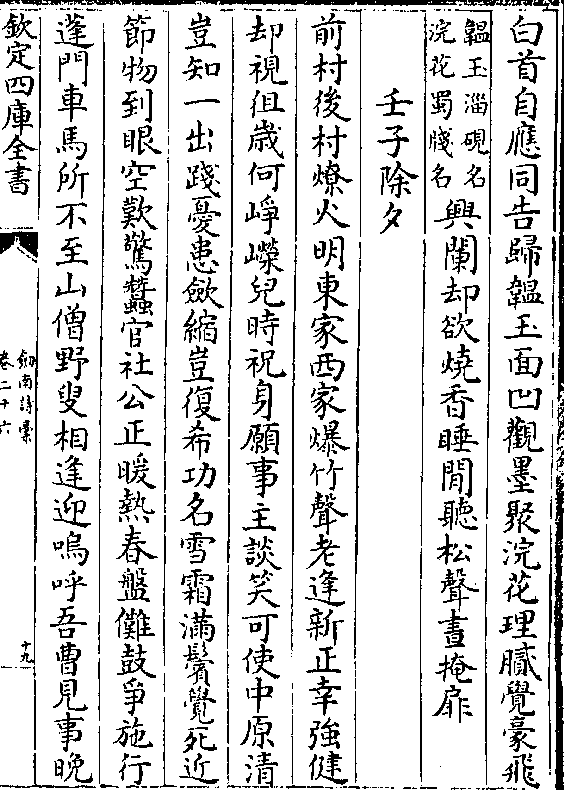 白首自應同告歸韞玉面凹觀墨聚浣花理膩覺豪飛
韞玉淄硯名
浣花蜀牋名
興闌却欲燒香睡閒聽松聲晝掩扉
壬子除夕
前村後村燎火明東家西家爆竹聲老逢新正幸強健
却視徂歳何崢嶸兒時祝身願事主談笑可使中原清
豈知一出踐憂患斂縮豈復希功名雪霜滿鬢覺死近
節物到眼空歎驚蠶官社公正暖熱春盤儺鼓爭施行
蓬門車馬所不至山僧野叟相逢迎嗚呼吾曹見事晚
欽定四庫全書
劎南詩槀
卷二十六
十九